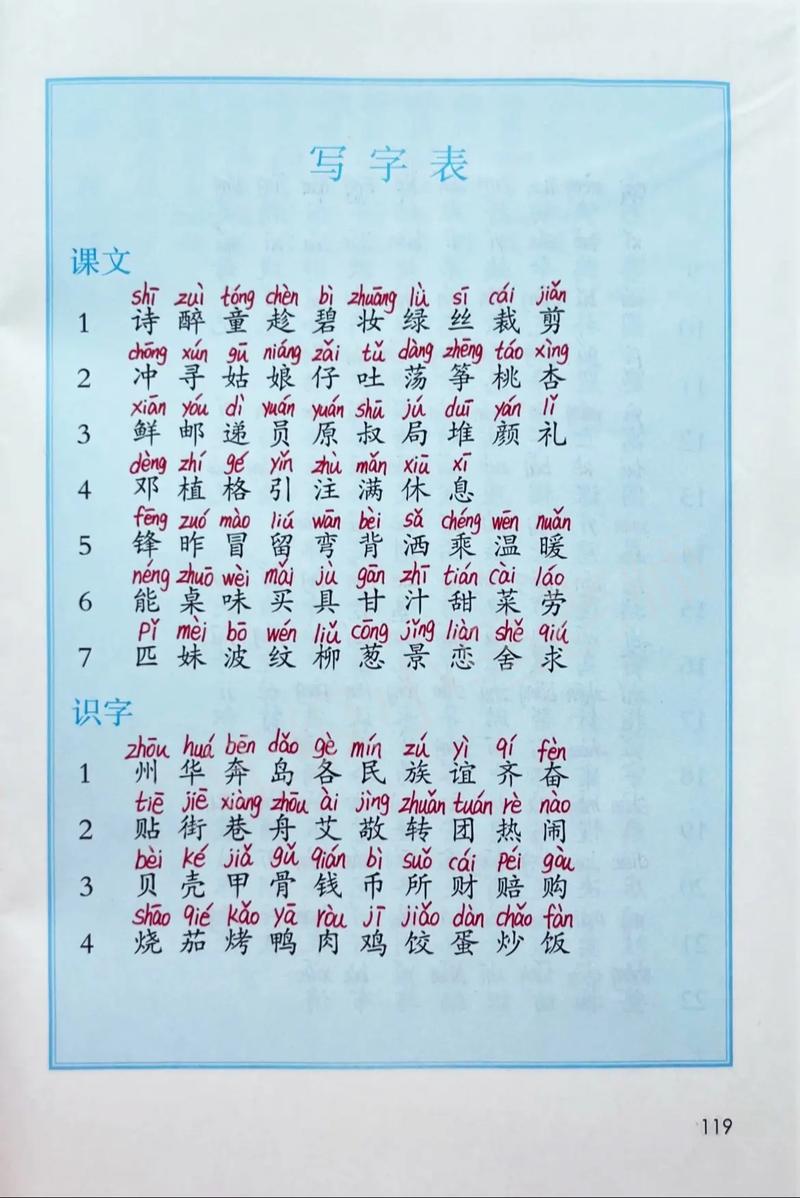 写字表
课文
shī zuì tóng chèn bì zhuāng lǜ sī cái jiǎn
1 诗 醉 童 趁 碧 妆 绿 丝 裁 剪
chōng xún gū niáng zǎi tǔ dàng zhēng táo xìng
2 冲 寻 姑 娘 仔 吐 荡 筝 桃 杏
xiān yóu dì yuán yuán shū jú duī yán lǐ
3 鲜 邮 递 员 原 叔 局 堆 颜 礼
dèng zhí gé yǐn zhù mǎn xiū xī
4 邓 植 格 引 注 满 休 息
fēng zuó mào liú wān bèi sǎ chéng wēn nuǎn
5 锋 昨 冒 留 弯 背 洒 乘 温 暖
néng zhuō wèi mǎi jù gān zhī tián cài láo
6 能 桌 味 买 具 甘 汁 甜 菜 劳
Pǐ mèi bō wén liǔ cōng jǐng liàn shě qiú
7 匹 妹 波 纹 柳 葱 景 恋 舍 求
识字
zhōu huá bēn dǎo gè mín zú yì qí fèn
1 州 华 奔 岛 各 民 族 谊 齐 奋
tiē jiē xiàng zhōu ài jìng zhuǎn tuán rè nào
2 贴 街 巷 舟 艾 敬 转 团 热 闹
bèi ké jiǎ gǔ qián bì suǒ cái Péi gòu
3 贝 壳 甲 骨 钱 币 所 财 赔 购
shāo qié kǎo yā ròu jī jiǎo dàn chǎo fàn
4 烧 茄 烤 鸭 肉 鸡 饺 蛋 炒 饭
119